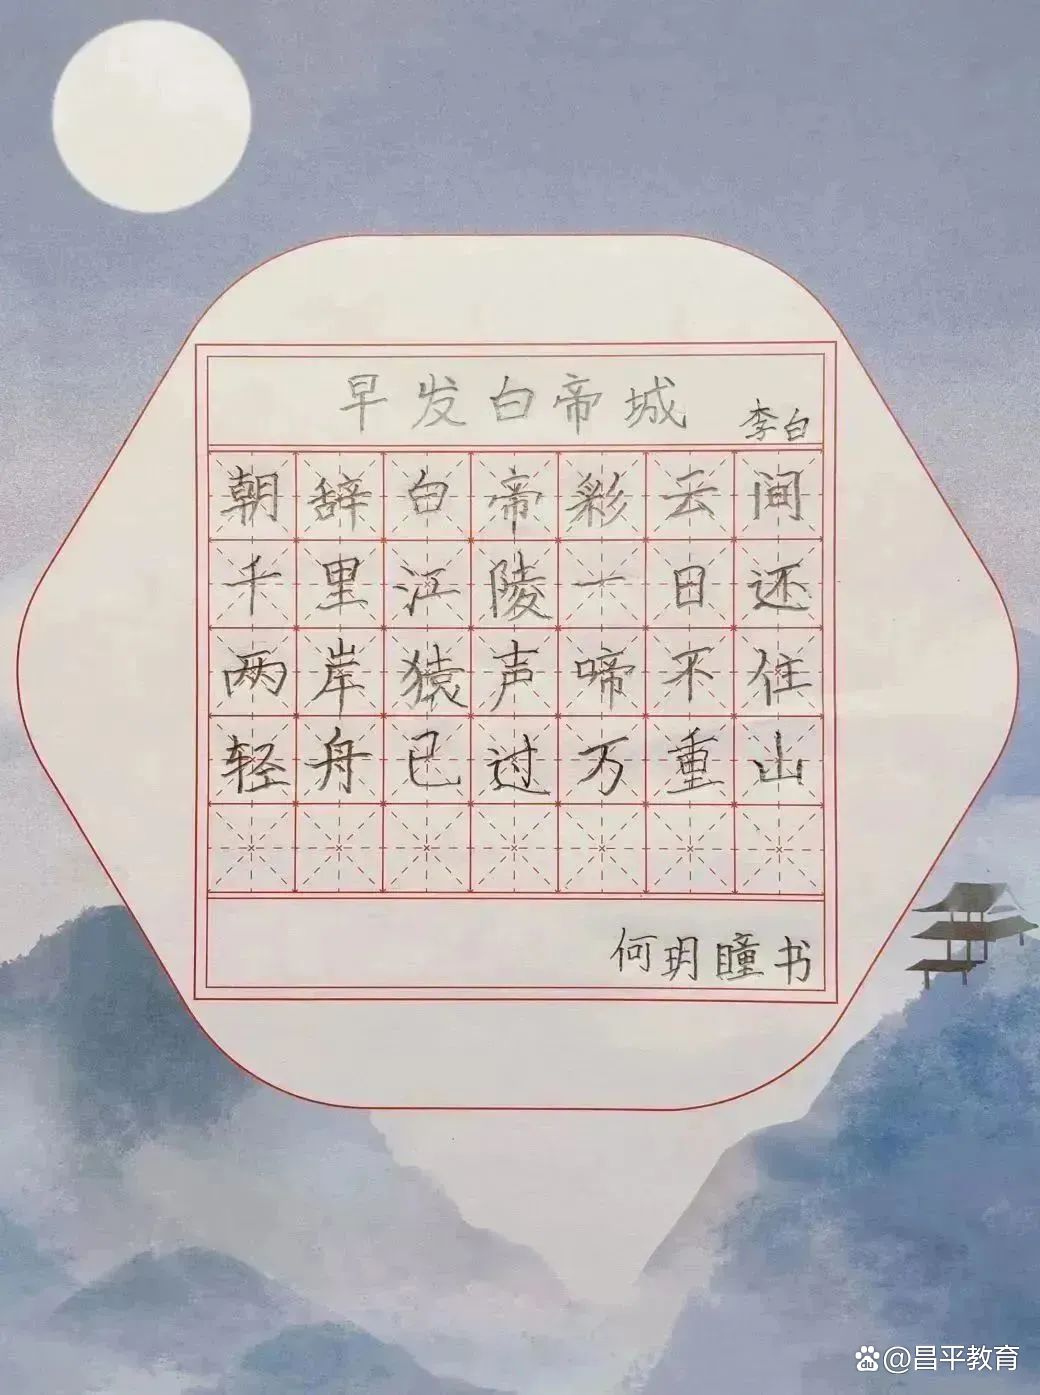 早发白帝城
李白
朝辞白帝彩云间
千里江陵一日还
两岸猿声啼不住
轻舟已过万重山
何玥瞳书
@昌平教育